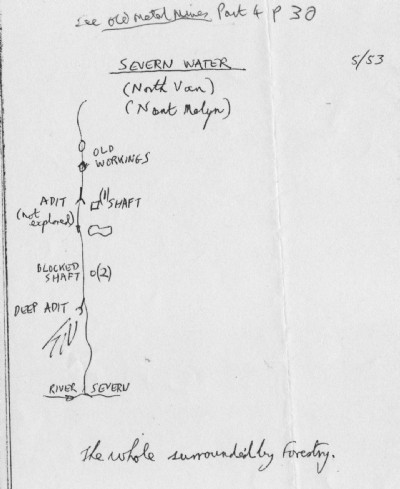 See old Metal Mines Part 4 p 30
5/53
SEVERN WATER
(North Van)
(Nant Melyn)
OLD
WORKINGS
ADIT
(not
explored)
(1) SHAFT
BLOCKED
SHAFT
(2)
DEEP ADIT
RIVER SEVERN
The whole surrounded by Forestry.